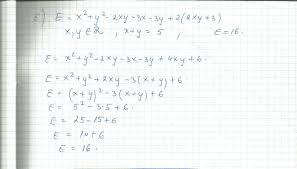 E) E = x² + y² - 2xy - 3x - 3y + 2(2xy + 3)
x, y ∈ ℝ , x + y = 5 , E = 16.
E = x² + y² - 2xy - 3x - 3y + 4xy + 6.
E = x² + y² + 2xy - 3(x + y) + 6
E = (x + y)² - 3(x + y) + 6.
E = 5² - 3·5 + 6
E = 25 - 15 + 6
E = 10 + 6
E = 16.